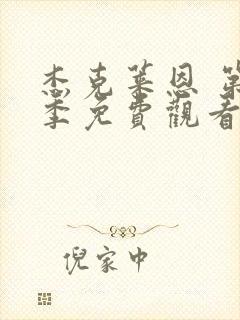 杰克莱恩 第
季免費觀看
倪家中